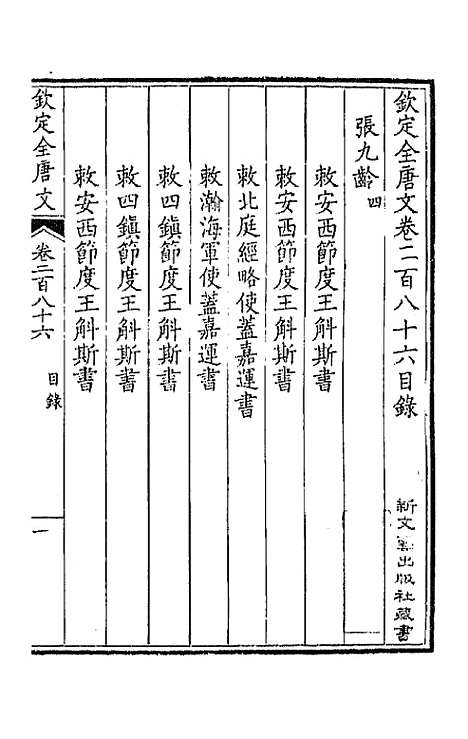 欽定全唐文卷二百八十六目錄
新文豐出版社藏書
張九齡四
敕安西節度王斛斯書
敕安西節度王斛斯書
敕北庭經略使蓋嘉運書
敕瀚海軍使蓋嘉運書
敕四鎮節度王斛斯書
敕四鎮節度王斛斯書
敕安西節度王斛斯書
欽定全唐文
卷二百八十六
目錄
一